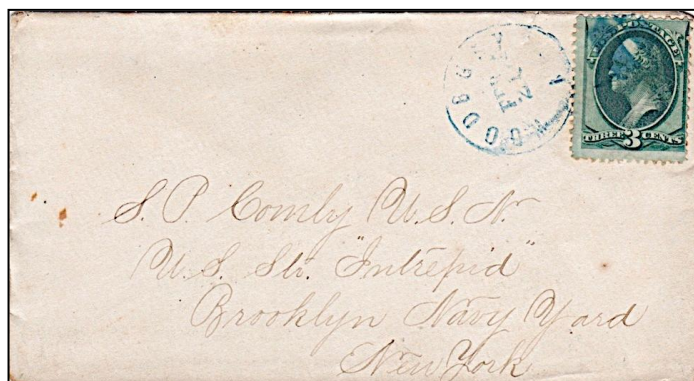 U.S. POSTAGE
THREE 3 CENTS
S. P. Comly U.S.N.
U.S. Str. "Intrepid"
Brooklyn Navy Yard
New York